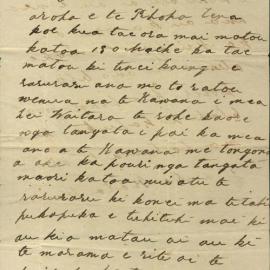 aroha e te Rhoha tena
koe kua tae ora mai matou
katoa 130 Maehe ka tae
matou ki tenei kainga e
raruraru ana mo to ratou
wenua na te Kawana i mea
hei Waitara te rohe kaore
nga tangata i pai ka mea
ano a te Kawana me tango
a ane ka pouri nga tangata
maori katoa mi atu te
raruraru ki konei ma tetahi
pukapuka e tuhituh mai ki
au kia matau ai au ki
te marama e rite ai te